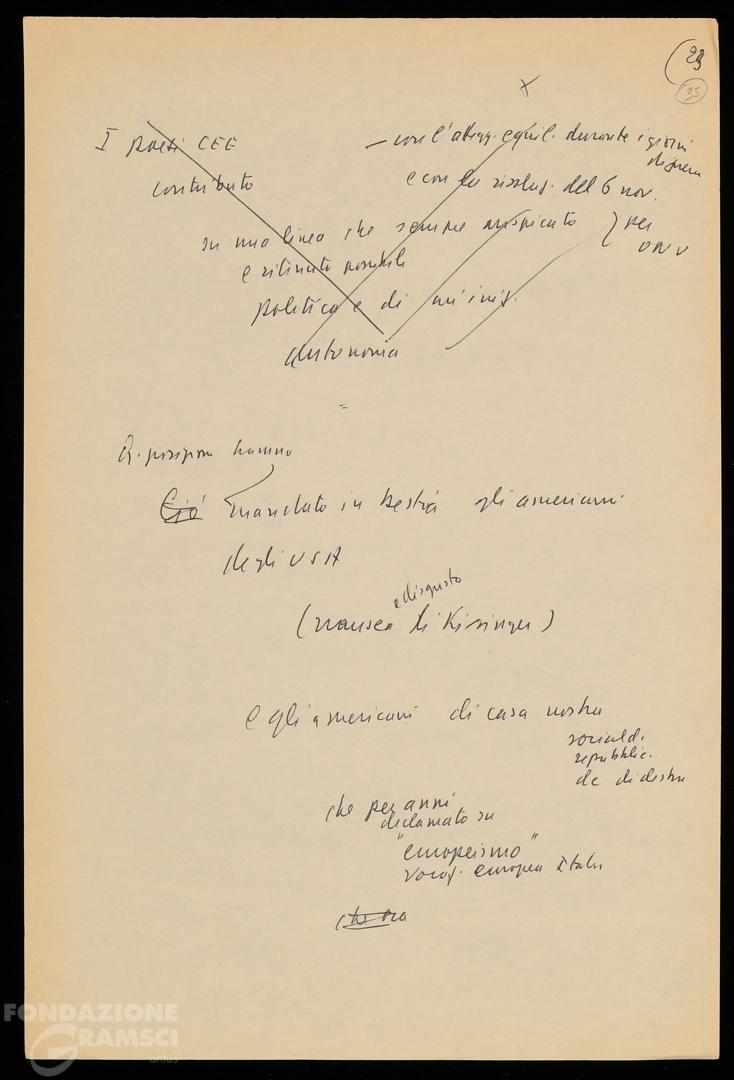 (23
25
I paesi CEE
contributo
– con l'attegg. equil. durante i giorni
di guerra
e con la risoluz. del 6 nov.
su una linea che sempre auspicato
e ritenuto possibile
} per
ONU
politica e di iniz.
autonoma
=
Q. posizioni hanno
Ciò mandato in bestia gli americani
degli USA
e disgusto
(nausea di Kissinger)
e gli americani di casa nostra
sociald.
repubblic.
dc di destra
che per anni
declamato su
"europeismo"
vocaz. europea Italia
che ora
FONDAZIONE
GRAMSCI
onlus